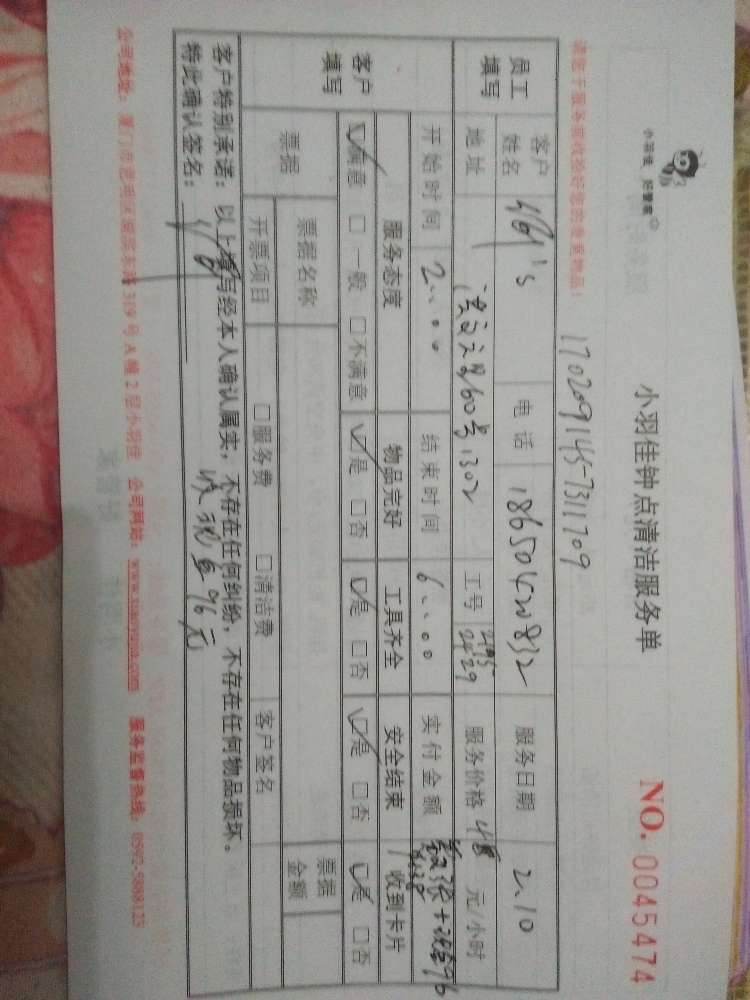 小羽佳 好管家
小羽佳钟点清洁服务单
NO. 0045474
170209145-7311709
员工填写
客户姓名
电话 18650420832
服务日期 2.10
地址 60号1302
工号 2429
服务价格 48 元/小时
开始时间 2:00
结束时间 6:00
实付金额 +现金96
客户填写
服务态度 物品完好 工具齐全 安全结束 收到卡片
☑满意 □一般 □不满意 ☑是 □否 ☑是 □否 ☑是 □否 ☑是 □否
票据 票据名称 票据金额
开票项目 □服务费 □清洁费 客户签名
客户特别承诺：以上填写经本人确认属实，不存在任何纠纷，不存在任何物品损坏。
特此确认签名： 收现金96元
公司地址：厦门市思明区 319号A幢2层小羽佳 公司网站：www.xiaoyujia.com 服务监督热线：0592-5888123